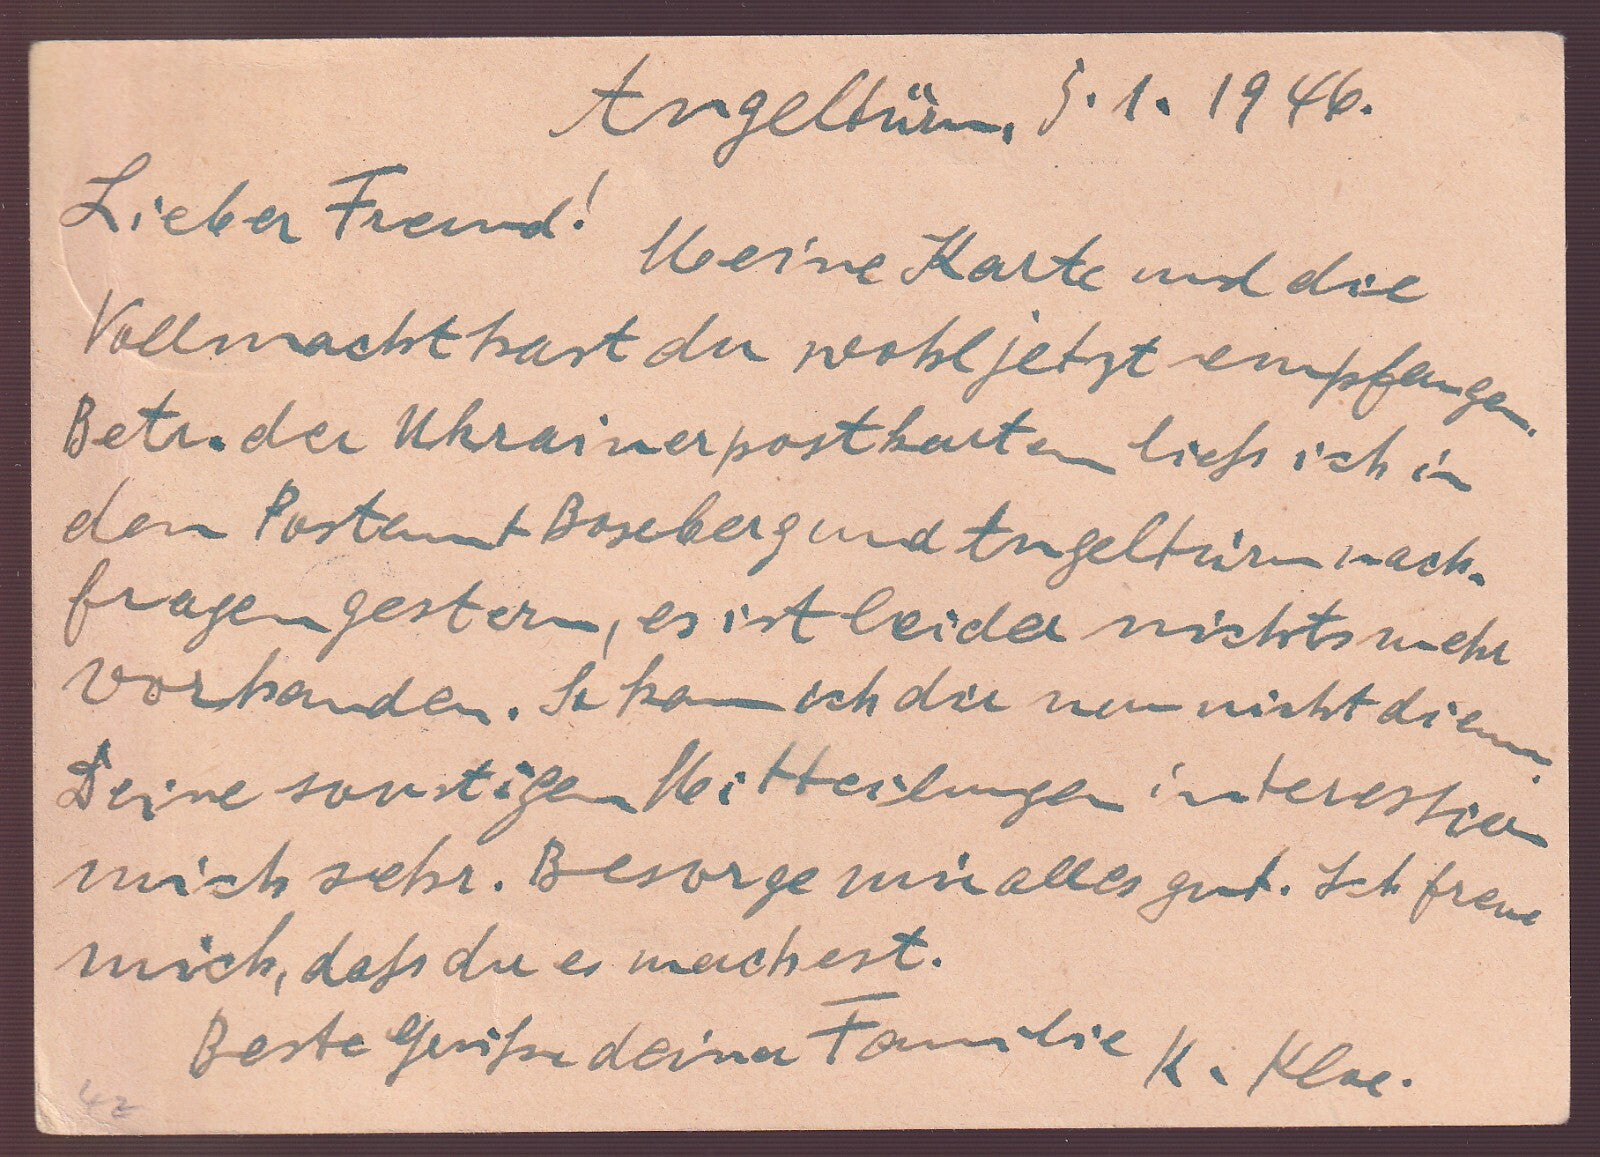 Angeltürn, 5.1.1946.
Lieber Freund!
Meine Karte und die
Vollmacht hast du wohl jetzt empfangen.
Betr. der Ukrainerpostkarten ließ ich in
den Postamt Boxberg und Angeltürn nach-
fragen gestern, es ist leider nichts mehr
vorhanden. So kann ich dir nun nicht dienen.
Deine sonstigen Mitteilungen interessieren
mich sehr. Besorge mir alles gut. Ich freue
mich, daß du es machest.
Beste Grüße deiner Familie K. Kloe.
42